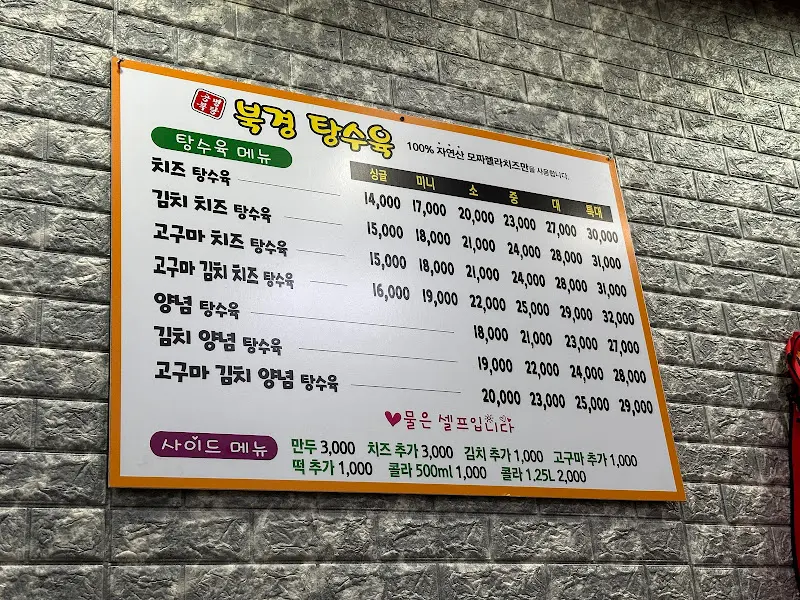 공평
북경 탕수육
100% 자연산 모짜렐라치즈만을 사용합니다.
탕수육 메뉴
싱글 미니 소 중 대 특대
치즈 탕수육 14,000 17,000 20,000 23,000 27,000 30,000
김치 치즈 탕수육 15,000 18,000 21,000 24,000 28,000 31,000
고구마 치즈 탕수육 15,000 18,000 21,000 24,000 28,000 31,000
고구마 김치 치즈 탕수육 16,000 19,000 22,000 25,000 29,000 32,000
양념 탕수육 18,000 21,000 23,000 27,000
김치 양념 탕수육 19,000 22,000 24,000 28,000
고구마 김치 양념 탕수육 20,000 23,000 25,000 29,000
♥물은 셀프입니다
사이드 메뉴
만두 3,000 치즈 추가 3,000 김치 추가 1,000 고구마 추가 1,000
떡 추가 1,000 콜라 500ml 1,000 콜라 1.25L 2,000